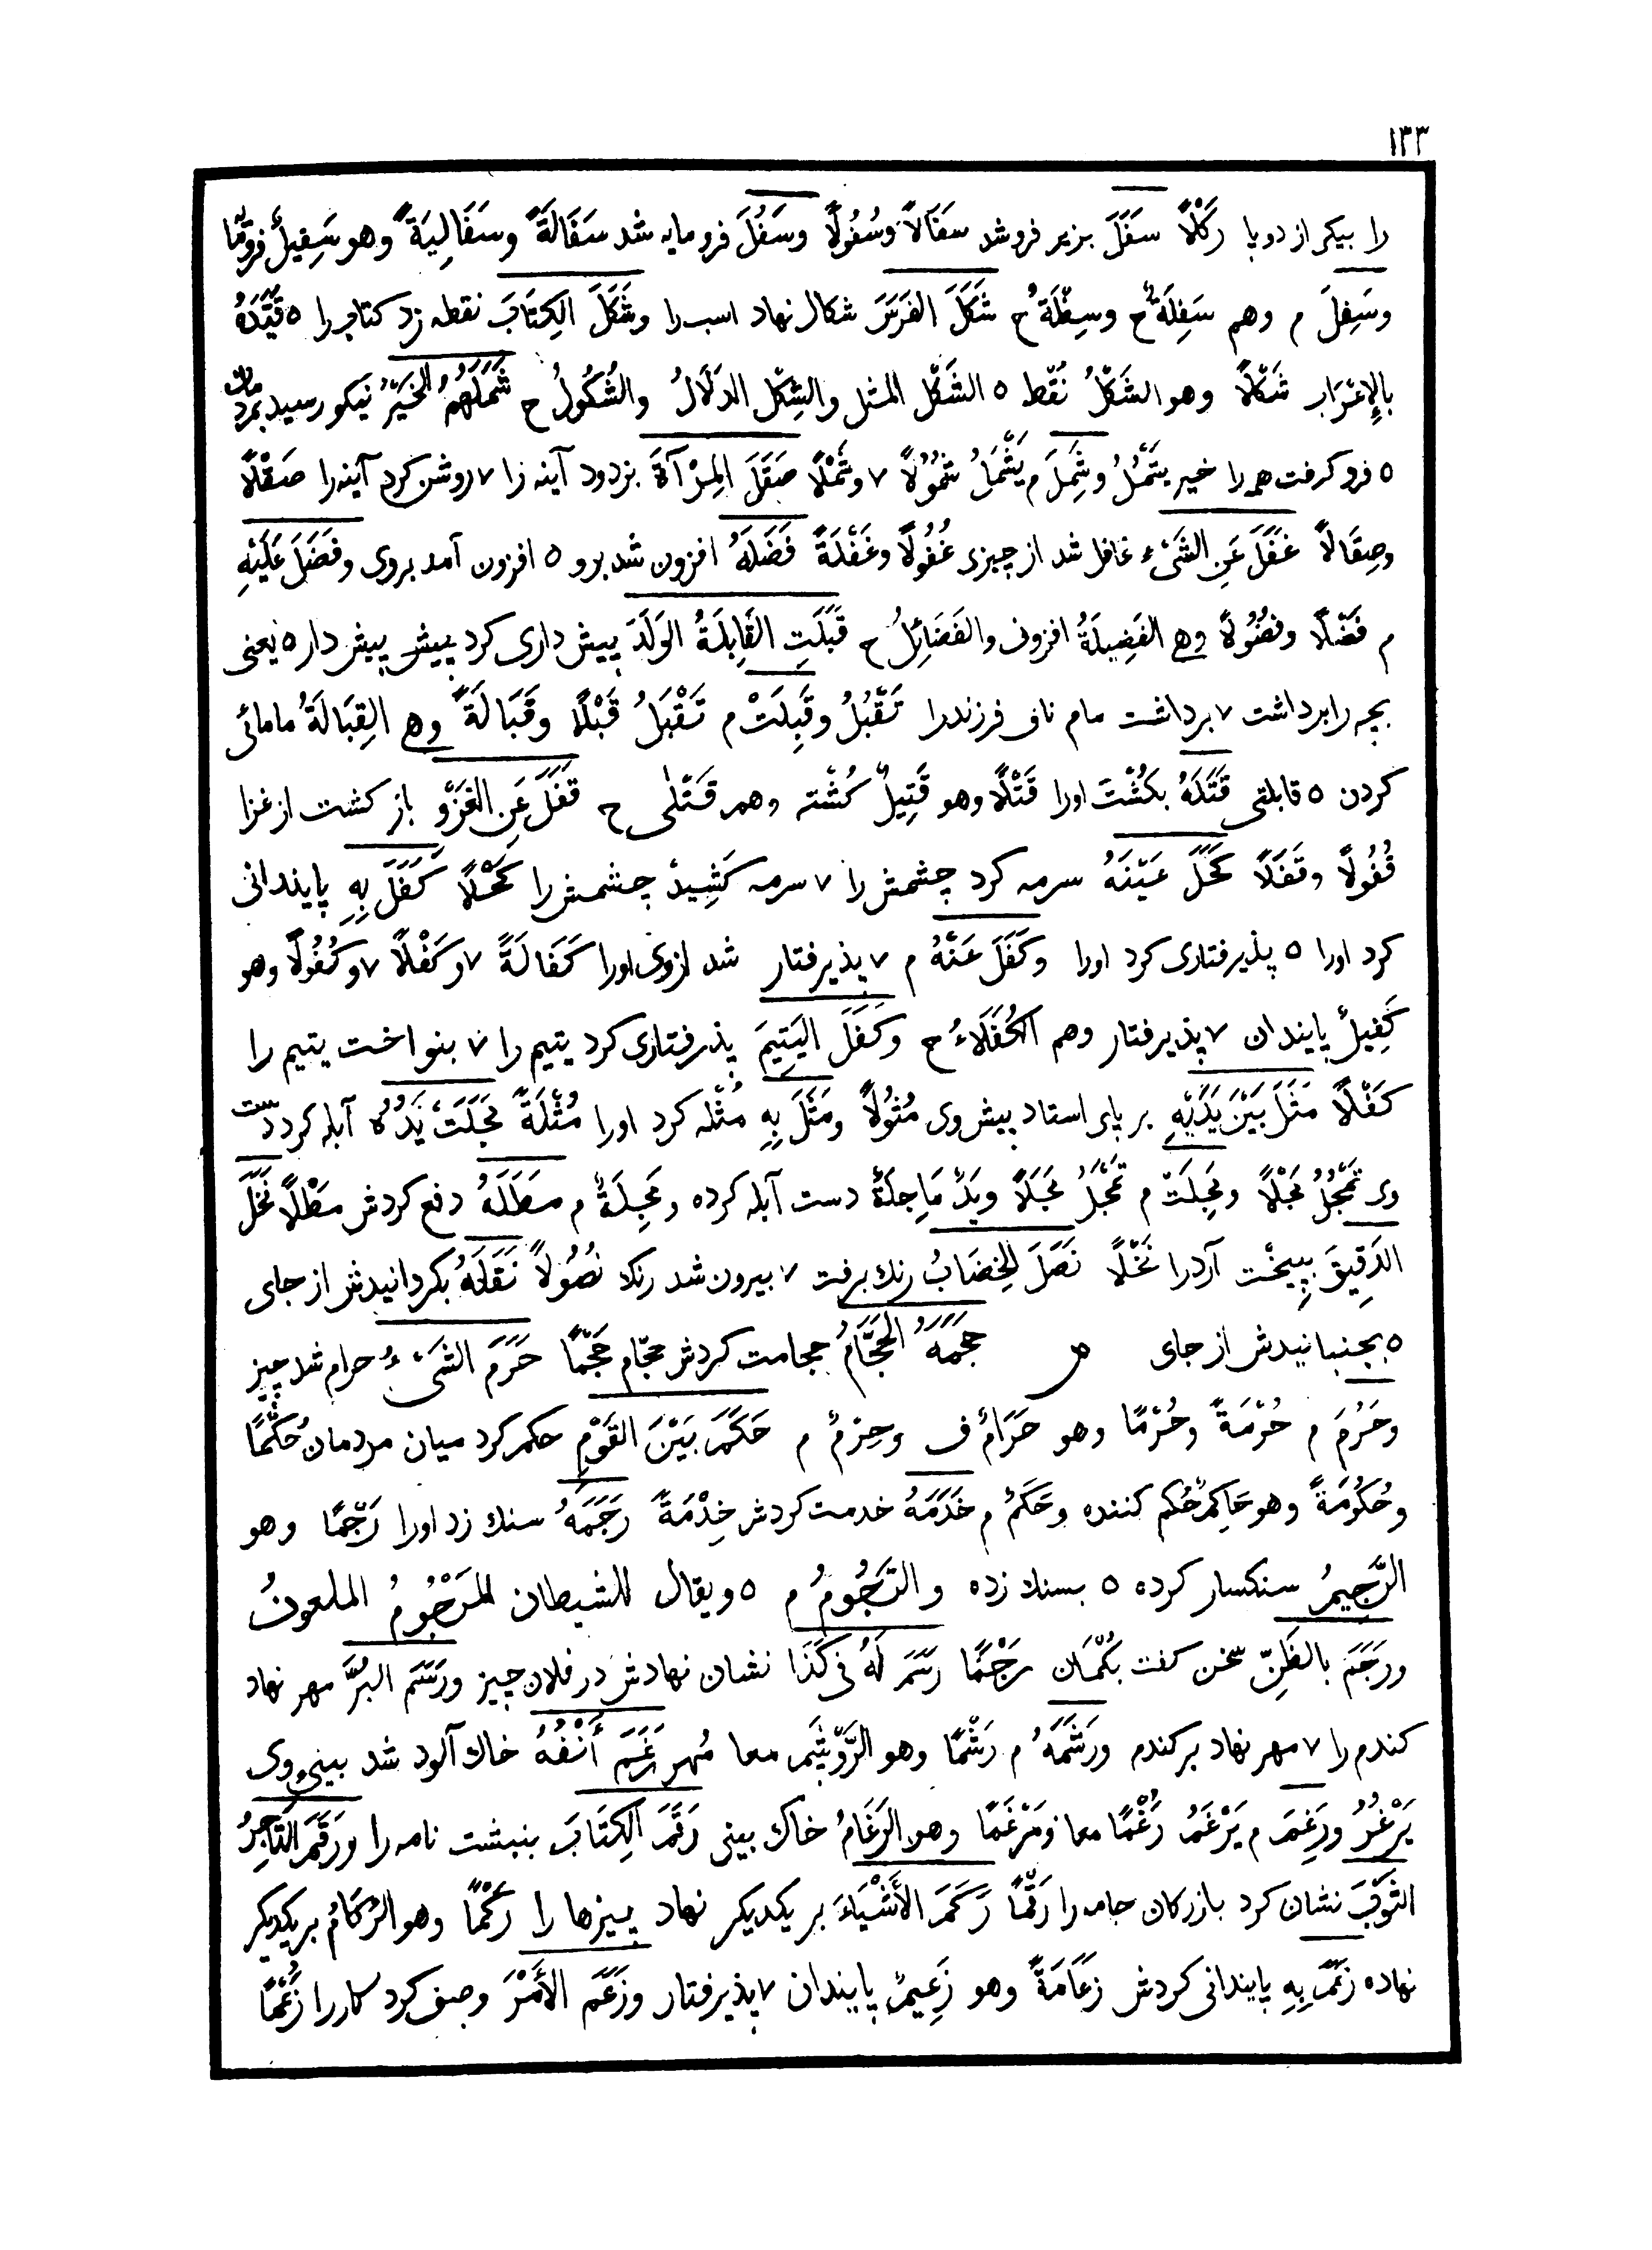 ١٣٣
را بیکر از دو پا رَكْلًا سَفَلَ بزیر فروشد سَفَالًا وسُفُولًا وسَفُلَ فرومایه شد سَفَالَةً وسَفَالِيَةً وهو سَفِيلٌ فرومایه
وسَفِلَ م وهم سَفِلَةٌ ح وسِفْلَةٌ ح شَكَلَ الفَرَسَ شکال نهاد اسب را وشَكَلَ الكِتَابَ نقطه زد کتاب را ٥ قَيَّدَهُ
بالإعْرَابِ شَكْلًا وهو الشَكْلُ نُقَط ٥ الشَكْل المثل والشِكْل الدَلَالُ والشُكُولُ ح شَمَلَهُمُ الخَيْرُ نیکو رسید بمردمان
٥ فرو کرفت همه را خیر يَشْمُلُ وشَمِلَ م يَشْمَلُ شُمُولًا ٧ وشَمْلًا صَقَلَ المِرْآةَ بزدود آینه را ٧ روشن کرد آینه را صَقْلًا
وصِقَالًا غَفَلَ عَنِ الشَىْءِ غافل شد از چیزی غُفُولًا وغَفْلَةً فَضَلَهُ افزون شد برو ٥ افزون آمد بروی وفَضَلَ عَلَيْهِ
م فَضْلًا وفُضُولًا وهي الفَضِيلَةُ افزونی والفَضَائِلُ ح قَبَلَتِ القَابِلَةُ الوَلَدَ پیش داری کرد پیش پیش دار ٥ یعنی
بچه را برداشت ٧ برداشت مام ناف فرزند را تَقْبُلُ وقَبِلَتْ م تَقْبَلُ قَبْلًا وقَبَالَةً وهي القِبَالَةُ مامائی
کردن ٥ قابلتی قَتَلَهُ بکُشت اورا قَتْلًا وهو قَتِيلٌ کُشته وهم قَتْلَى ح قَفَلَ عَنِ الغَزْوِ باز کشت از غزا
قُفُولًا وقَفَلًا كَحَلَ عَيْنَهُ سرمه کرد چشمش را ٧ سرمه کَشِید چشمش را كَحْلًا كَفَلَ بِهِ پایندانی
کرد اورا ٥ پذیرفتاری کرد اورا وكَفَلَ عَنْهُ م ٧ پذیرفتار شد از وی اورا كَفَالَةً ٧ وكَفْلًا ٧ وكُفُولًا وهو
كَفِيلٌ پایندان ٧ پذیرفتار وهم الكُفَلَاءُ ح وكَفَلَ اليَتِيمَ پذیرفتاری کرد یتیم را ٧ بنواخت یتیم را
كَفْلًا مَثَلَ بَيْنَ يَدَيْهِ بر پای استاد پیش وی مُثُولًا ومَثَلَ بِهِ مُثْله کرد اورا مُثْلَةً مَجَلَتْ يَدُهُ آبله کرد دست
وی تَمْجُلُ مَجْلًا ومَجِلَتْ م تَمْجَلُ مَجَلًا ويَدٌ مَاجِلَةٌ دست آبله کرده ومَجِلَةٌ م مَطَلَهُ دفع کردش مَطْلًا نَخَلَ
الدَقِيقَ ببیخت آرد را نَخْلًا نَصَلَ الخِضَابُ رنك برفت ٧ بیرون شد رنك نُصُولًا نَقَلَهُ بکردانیدش از جای
٥ بجنبانیدش از جای م حَجَمَهُ الحَجَّامُ حجامت کردش حجّام حَجْمًا حَرَمَ الشَىْءُ حرام شد چیز
وحَرُمَ م حُرْمَةً وحُرْمًا وهو حَرَامٌ ف وحِرْمٌ م حَكَمَ بَيْنَ القَوْمِ حکم کرد میان مردمان حُكْمًا
وحُكُومَةً وهو حَاكِمٌ حُکم کننده وحَكَمٌ م خَدَمَهُ خدمت کردش خِدْمَةً رَجَمَهُ سنك زد اورا رَجْمًا وهو
الرَّجِيمُ سنکسار کرده ٥ بسنك زده والرَّجُومُ م ٥ ويقال للشيطان المَرْجُومُ الملعونُ
ورَجَمَ بالظَنِّ سخن کفت بکُمان رَجْمًا رَسَمَ لَهُ فى كَذَا نشان نهادش در فلان چیز ورَسَمَ البُرَّ مهر نهاد
کندم را ٧ مهر نهاد بر کندم ورَشَمَهُ م رَشْمًا وهو الرَّوْشَم معا مُهر رَغَمَ أَنْفُهُ خاك آلود شد بینیء وی
يَرْغُمُ ورَغِمَ م يَرْغَمُ رُغْمًا معا ومَرْغَمًا وهو الرَغَامُ خاك بینی رَقَمَ الكِتَابَ بنبشت نامه را ورَقَمَ التَاجِرُ
الثَوْبَ نشان کرد بازرکان جامه را رَقْمًا رَكَمَ الأَشْيَاءَ بر یکدیکر نهاد چیزها را رَكْمًا وهو الرُكَامُ بر یکدیکر
نهاده زَعَمَ بِهِ پایندانی کردش زَعَامَةً وهو زَعِيمٌ پایندان ٧ پذیرفتار وزَعَمَ الأَمْرَ وصف کرد کار را زَعْمًا